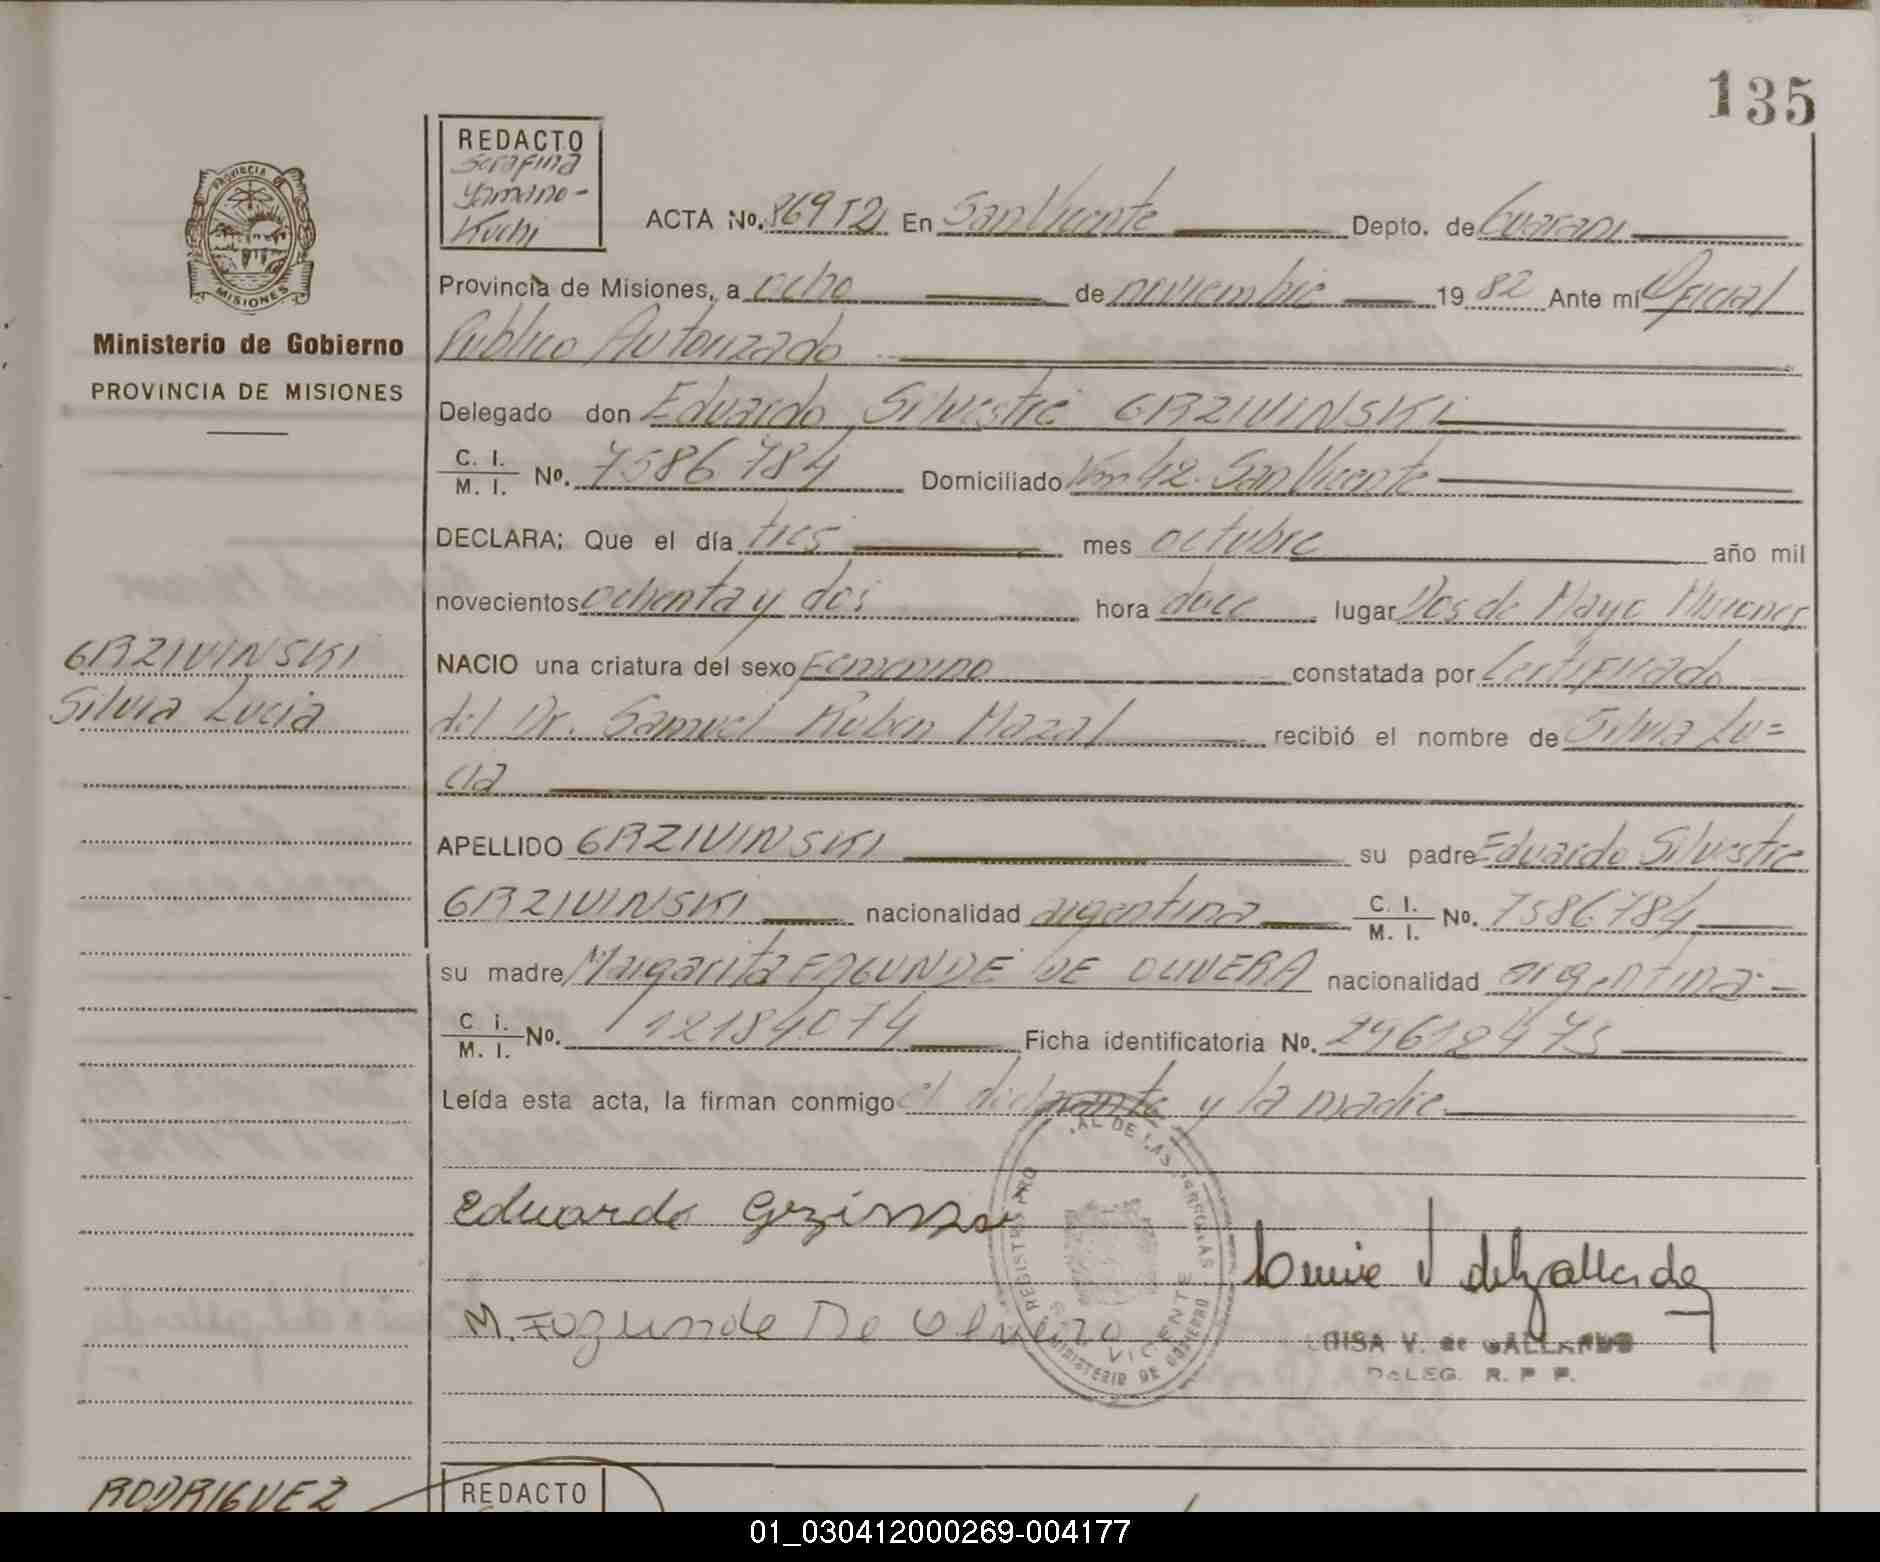 135
REDACTO
Serafina
Yamano-
Kuchi
ACTA No. 869 T2 En San Vicente Depto. de Guarani
PROVINCIA DE
MISIONES
Provincia de Misiones, a ocho de noviembre 1982 Ante mí Oficial
Ministerio de Gobierno
PROVINCIA DE MISIONES
Publico Autorizado
Delegado don Eduardo Silvestre GRZIVINSKI
C. I.
M. I. No. 7586784 Domiciliado Km 42. San Vicente
DECLARA; Que el día tres mes octubre año mil
novecientos ochenta y dos hora doce lugar Dos de Mayo Misiones
GRZIVINSKI
Silvia Lucia
NACIO una criatura del sexo Femenino constatada por Certificado
del Dr. Samuel Ruben Mazal recibió el nombre de Silvia Lu=
cia
APELLIDO GRZIVINSKI su padre Eduardo Silvestre
GRZIVINSKI nacionalidad argentina C. I.
M. I. No. 7586784
su madre Margarita FAGUNDE DE OLIVERA nacionalidad argentina-
C i.
M. I. No. 12184074 Ficha identificatoria No. 29612473
Leída esta acta, la firman conmigo el declarante y la madre
Eduardo
M. Fogunde De Olveiro
REGISTRO AL DE LAS
MINISTERIO DE GOBIERNO
VICENTE
LUISA V. de GALLARDO
DELEG. R. P. P.
RODRIGUEZ
REDACTO
01_030412000269-004177